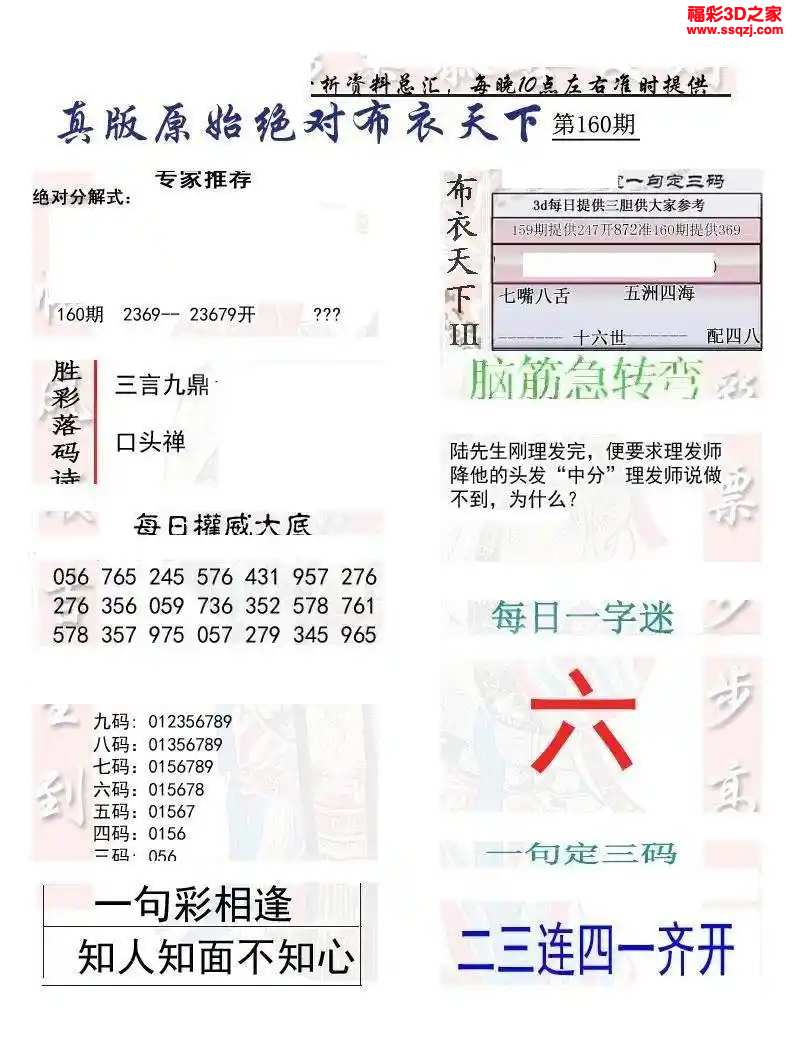 福彩3D之家
www.ssqzj.com
析资料总汇，每晚10点左右准时提供
真版原始绝对布衣天下 第160期
专家推荐
绝对分解式：
160期 2369-- 23679开 ???
胜彩落码诗
三言九鼎
口头禅
每日權威大底
056 765 245 576 431 957 276
276 356 059 736 352 578 761
578 357 975 057 279 345 965
九码: 012356789
八码: 01356789
七码: 0156789
六码: 015678
五码: 01567
四码: 0156
三码: 056
一句彩相逢
知人知面不知心
布衣天下III
一句定三码
3d每日提供三胆供大家参考
159期提供247开872准160期提供369
)
七嘴八舌 五洲四海
------- 十六世------- 配四八
脑筋急转弯
陆先生刚理发完，便要求理发师
降他的头发“中分”理发师说做
不到，为什么？
每日一字迷
六
一句定三码
二三连四一齐开
彩票
步步高
到